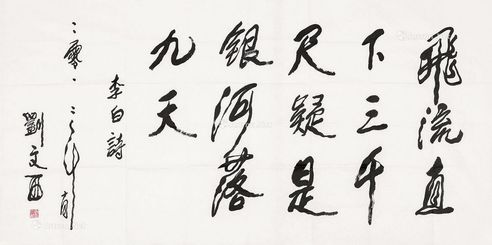 飛流直
下三千
尺疑是
銀河落
九天
李白詩
二零一
劉文西